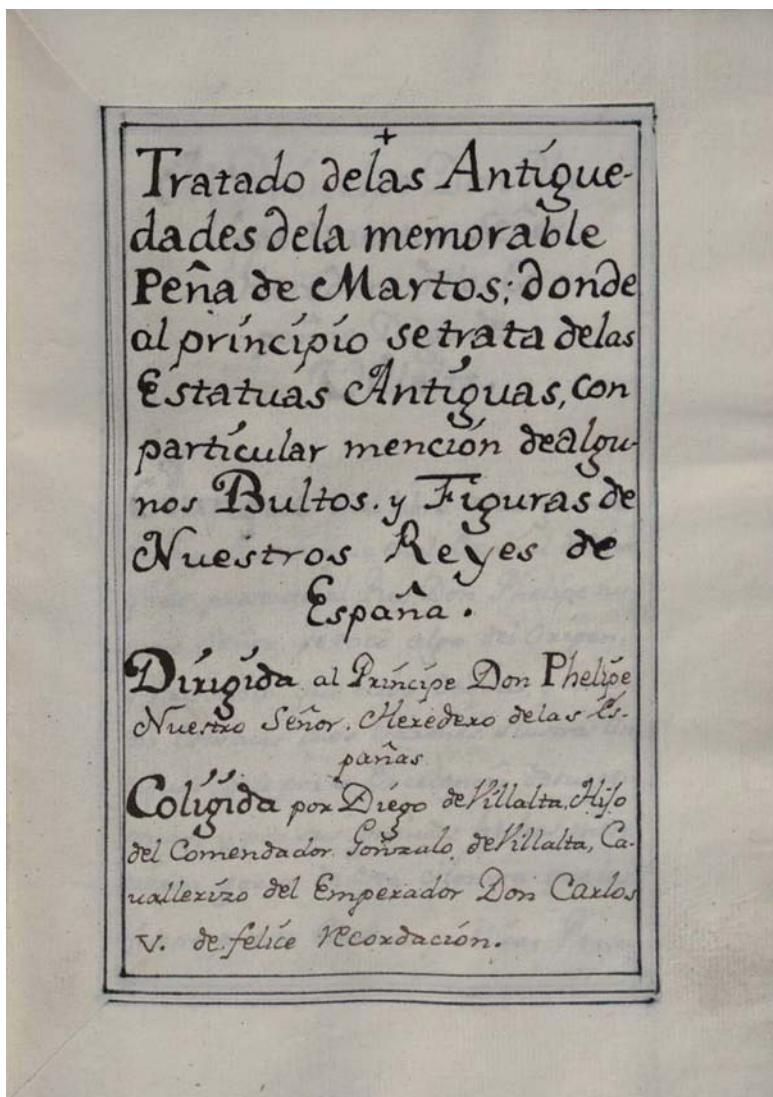 +
Tratado delas Antigue-
dades dela memorable
Peña de Martos; donde
al principio se trata delas
Estatuas Antiguas, con
particular mención de algu-
nos Bultos. y Figuras de
Nuestros Reyes de
España.
Dirigida al Príncipe Don Phelipe
Nuestro Señor. Heredero delas Es-
pañas
Coligida por Diego de Villalta, Hijo
del Comendador Gonzalo de Villalta, Ca-
uallerizo del Emperador Don Carlos
V. de felice recordación.